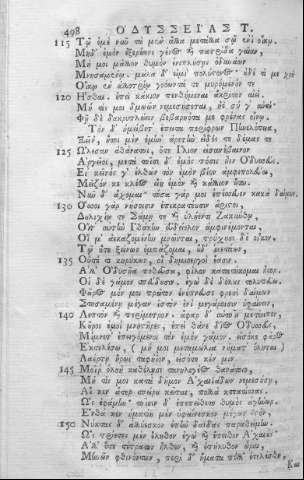 498 ΟΔΥΣΣΕΊΑΣ Τ.
115 Τῷ ἐμὲ νῦν τὰ μὲν ἄλλα μετάλλα σῷ ἐνὶ οἴκῳ,
Μηδ᾽ ἐμὸν ἐξερέεινε γένος καὶ πατρίδα γαῖαν,
Μή μοι μᾶλλον θυμὸν ἐνιπλήσῃς ὀδυνάων
Μνησαμένῳ. μάλα δ᾽ εἰμὶ πολύστονος· οὐδέ τί με χρὴ
Οἴκῳ ἐν ἀλλοτρίῳ γοόωντά τε μυρόμενόν τε
120 Ἧσθαι. ἐπεὶ κάκιον πενθήμεναι ἄκριτον αἰεί.
Μή τίς μοι δμωῶν νεμεσήσεται, ἠὲ σύ γ᾽ αὐτή·
Φῇ δὲ δακρυπλώειν βεβαρηότα με φρένας οἴνῳ.
Τὸν δ᾽ ἠμείβετ᾽ ἔπειτα περίφρων Πηνελόπεια,
Ξεῖν᾽, ἤτοι μὲν ἐμὴν ἀρετὴν εἶδός τε δέμας τε
125 Ὤλεσαν ἀθάνατοι, ὅτε Ἴλιον εἰσανέβαινον
Ἀργεῖοι, μετὰ τοῖσι δ᾽ ἐμὸς πόσις ᾖεν Ὀδυσσεύς.
Εἰ κεῖνός γ᾽ ἐλθὼν τὸν ἐμὸν βίον ἀμφιπολεύοι,
Μεῖζόν κε κλέος εἴη ἐμὸν καὶ κάλλιον οὕτω.
Νῦν δ᾽ ἄχομαι· τόσα γάρ μοι ἐπέσσευεν κακὰ δαίμων.
130 Ὅσσοι γὰρ νήσοισιν ἐπικρατέουσιν ἄριστοι,
Δουλιχίῳ τε Σάμῃ τε καὶ ὑλήεντι Ζακύνθῳ,
Οἵ τ᾽ αὐτὴν Ἰθάκην εὐδείελον ἀμφινέμονται,
Οἵ μ᾽ ἀεκαζομένην μνῶνται, τρύχουσι δὲ οἶκον.
Τῷ οὔτε ξείνων ἐμπάζομαι, οὔθ᾽ ἱκετάων,
135 Οὔτε τι κηρύκων, οἳ δημιοεργοὶ ἔασιν.
Ἀλλ᾽ Ὀδυσῆα ποθεῦσα, φίλον κατατήκομαι ἦτορ.
Οἱ δὲ γάμον σπεύδουσιν· ἐγὼ δὲ δόλους τολυπεύω.
Φᾶρος μέν μοι πρῶτον ἐνέπνευσε φρεσὶ δαίμων
Στησαμένῃ μέγαν ἱστὸν ἐνὶ μεγάροισιν ὑφαίνειν,
140 Λεπτὸν καὶ περίμετρον. ἄφαρ δ᾽ αὐτοῖς μετέειπον,
Κοῦροι ἐμοὶ μνηστῆρες, ἐπεὶ θάνε δῖος Ὀδυσσεύς,
Μίμνετ᾽ ἐπειγόμενοι τὸν ἐμὸν γάμον, εἰσόκε φᾶρος
Ἐκτελέσω, (μή μοι μεταμώνια νήματ᾽ ὄληται)
Λαέρτῃ ἥρωϊ ταφήϊον, εἰσότε κέν μιν
145 Μοῖρ᾽ ὀλοὴ καθέλῃσι τανηλεγέος θανάτοιο,
Μή τίς μοι κατὰ δῆμον Ἀχαιϊάδων νεμεσήσῃ,
Αἴ κεν ἄτερ σπείρου κεῖται, πολλὰ κτεατίσσας.
Ὣς ἐφάμην· τοῖσιν δ᾽ ἐπεπείθετο θυμὸς ἀγήνωρ.
Ἔνθα κεν ἡματίη μὲν ὑφαίνεσκον μέγαν ἱστὸν,
150 Νύκτας δ᾽ ἀλλύεσκον ἐπὴν δαΐδας παραθείμην.
Ὣς τρίετες μὲν ἔληθον ἐγὼ καὶ ἔπειθον Ἀχαιούς·
Ἀλλ᾽ ὅτε τέτρατον ἦλθεν ἔτος, καὶ ἐπήλυθον ὧραι,
Μηνῶν φθινόντων, περὶ δ᾽ ἤματα πόλλ᾽ ἐτελέσθη,
Και